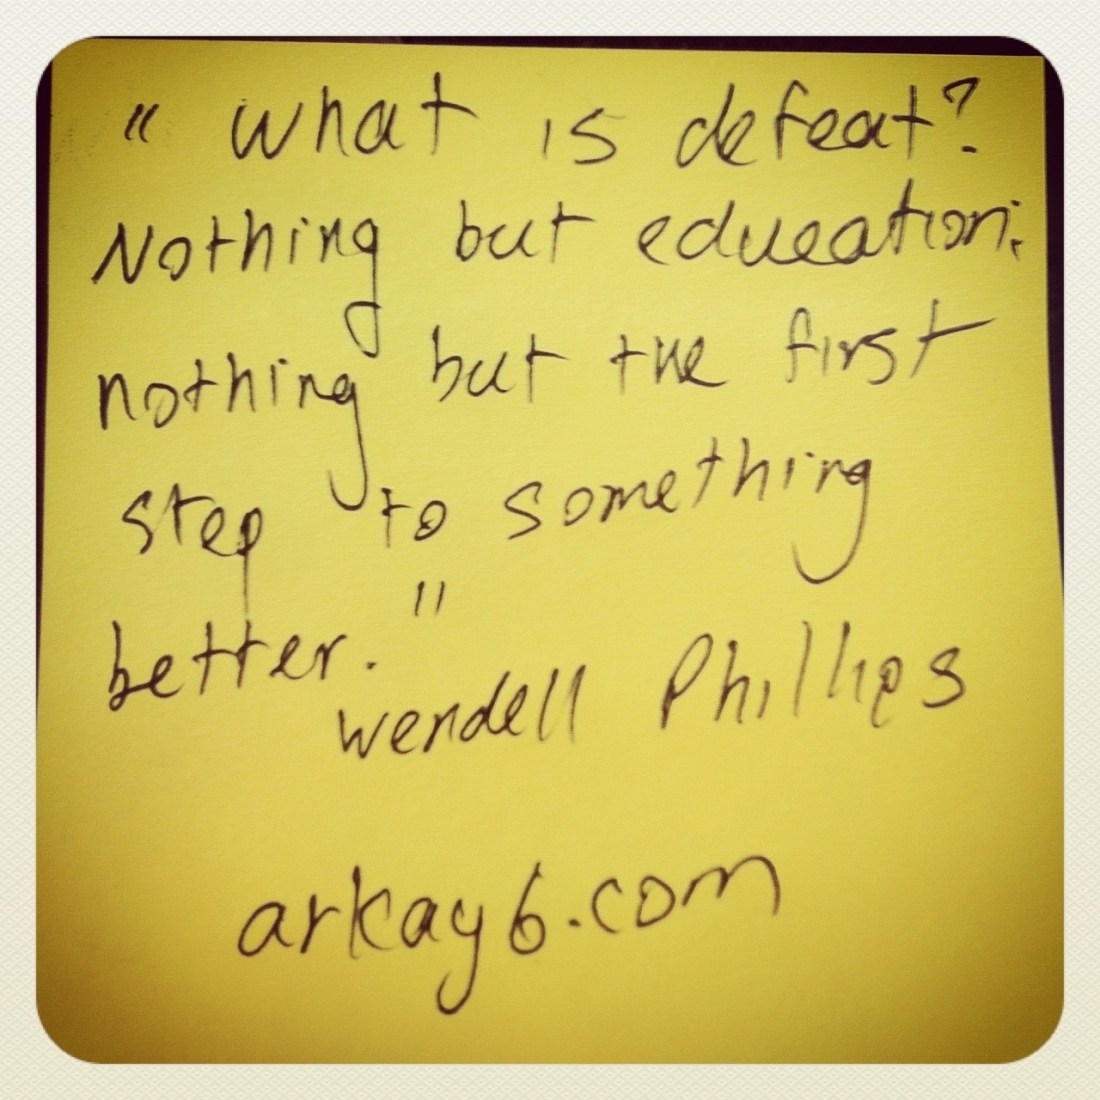 " What is defeat?
Nothing but education;
nothing but the first
step to something
better."
Wendell Phillips
arkay6.com